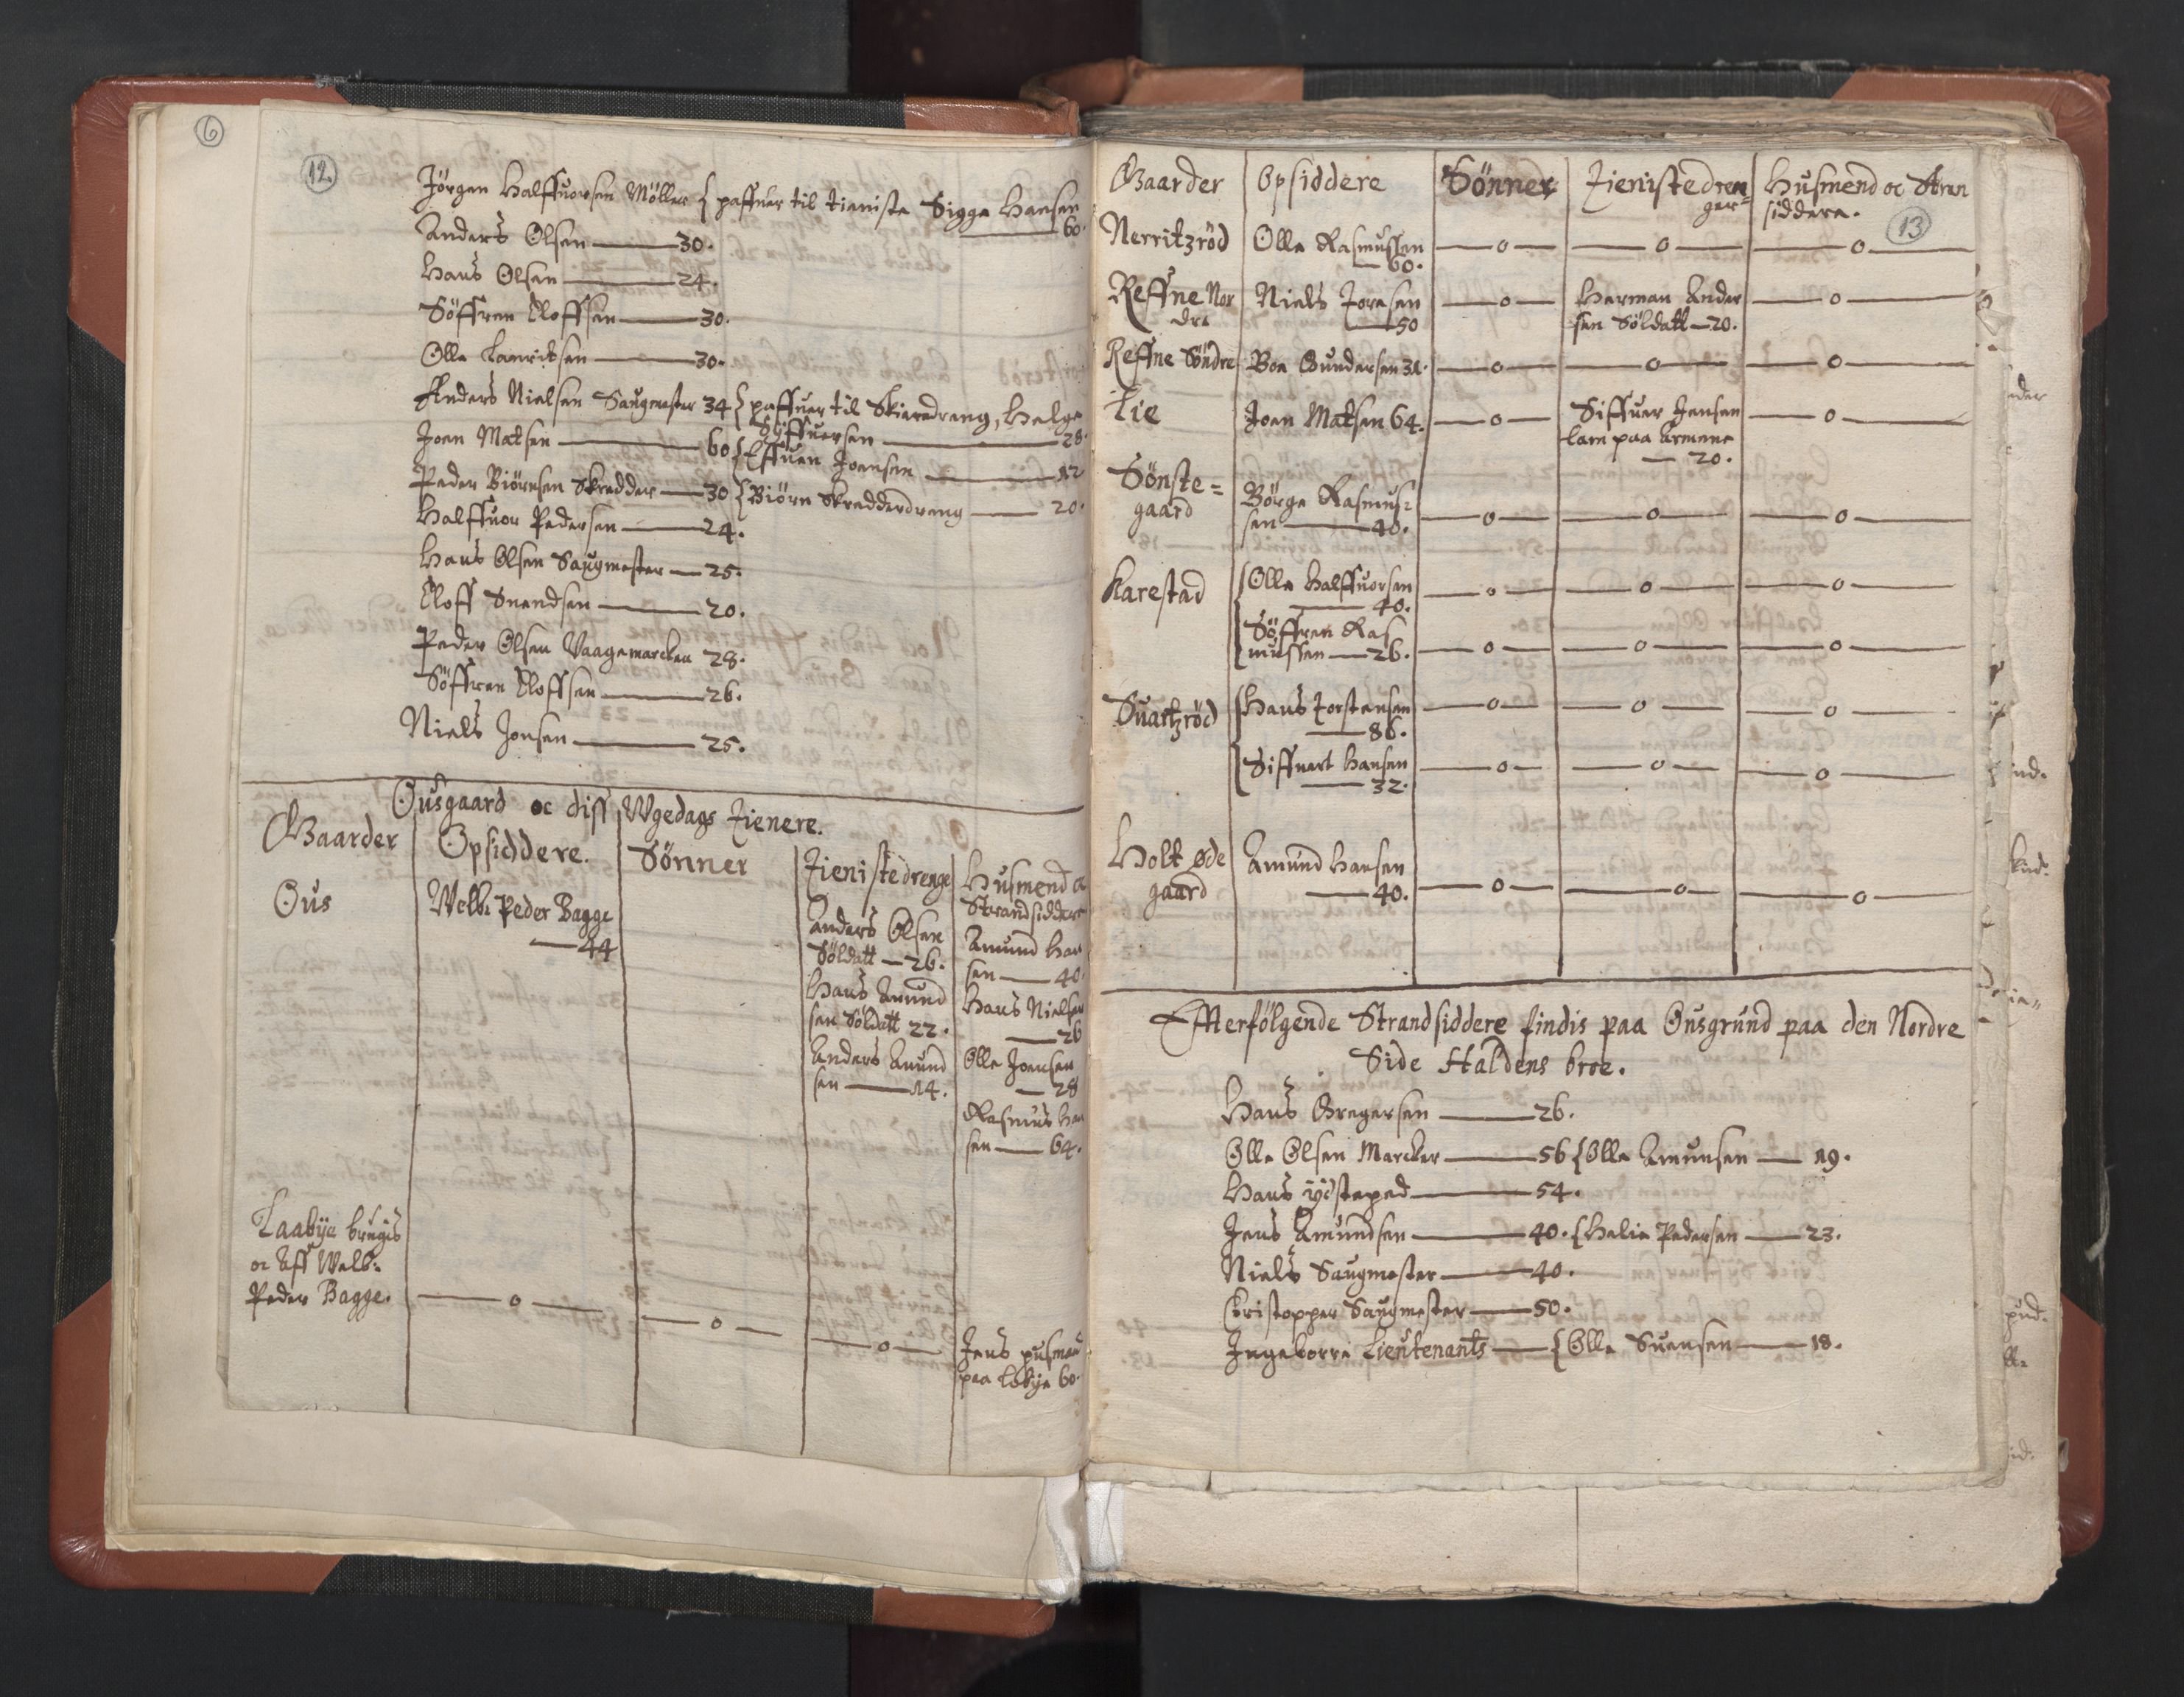 6
12.
Jörgen Halffuorsen Möller { paffuer til tieniste Sigge Hansen
60.
Anders Olsen — 30.
Hans Olsen — 24.
Söffren Eloffsen — 30.
Olle Lauritsen — 30.
Anders Nielsen Saugmester 34 { paffuer til Skieredreng, Helge
Siffuersen — 28.
Joen Matsen — 60 { Effuen Joensen — 12
Peder Biörnsen Skredder — 30 { Biörn Skredderdreng — 20.
Halffuor Pedersen — 24.
Hans Olsen Saugmester — 25.
Eloff Suendsen — 20.
Peder Olsen Vaagemarcken 28.
Söffren Eloffsen — 26.
Niels Jonsen — 25.
Ousgaard oc diss Wgedags Tienere.
Gaarder Opsiddere. Sönner Tienistedrenge Husmend oc
Strandsiddere
Ous Welb: Peder Bagge
— 44
Anders Olsen
Söldatt — 26.
Hans Amund
sen Söldatt 22.
Anders Amund
sen — 14.
Amund Han
sen — 40
Hans Nielsen
— 26
Olle Joensen
— 28
Rasmus Han
sen — 64.
Laabye brugis
oc Aff Welb:
Peder Bagge. — 0 — — 0 — — 0 —
Jens Husmand
paa Lobye 60.
Gaarder Opsiddere Sönner Tienistedren
ger= Husmend oc Stran
siddere.
13
Nerritzröd Olle Rasmussen
— 60. — 0 — — 0 — — 0 —
Reffne Nor
dre Niels Toresen
— 50 — 0 — Herman Ander
sen Söldatt — 20. — 0 —
Reffne Söndre Boe Gundersen 31. — 0 — — 0 — — 0 —
Lie Joen Matsen 64. — 0 — Siffuer Jensen
lam paa Armene
— 20. — 0 —
Sönste=
gaard Börge Rasmus=
sen — 40. — 0 — — 0 — — 0 —
Karestad { Olle Halffuorsen
— 40. — 0 — — 0 — — 0 —
{ Söffren Ras
mussen — 26. — 0 — — 0 — — 0 —
Suartzröd { Hans Torstensen
— 86. — 0 — — 0 — — 0 —
{ Siffuert Hansen
— 32. — 0 — — 0 — — 0 —
Holt øde
gaard Amund Hansen
— 40. — 0 — — 0 — — 0 —
Efterfölgende Strandsiddere findis paa Ousgrund paa den Nordre
Side Haldens broe.
Hans Gregersen — 26.
Olle Olsen Marcker — 56 { Olle Amunsen — 19.
Hans ydsteped — 54.
Jens Amundsen — 40. { Helie Pedersen — 23.
Niels Saugmester — 40.
Christopper Saugmester — 50.
Ingeborre Lieutenants — { Olle Suensen — 18.